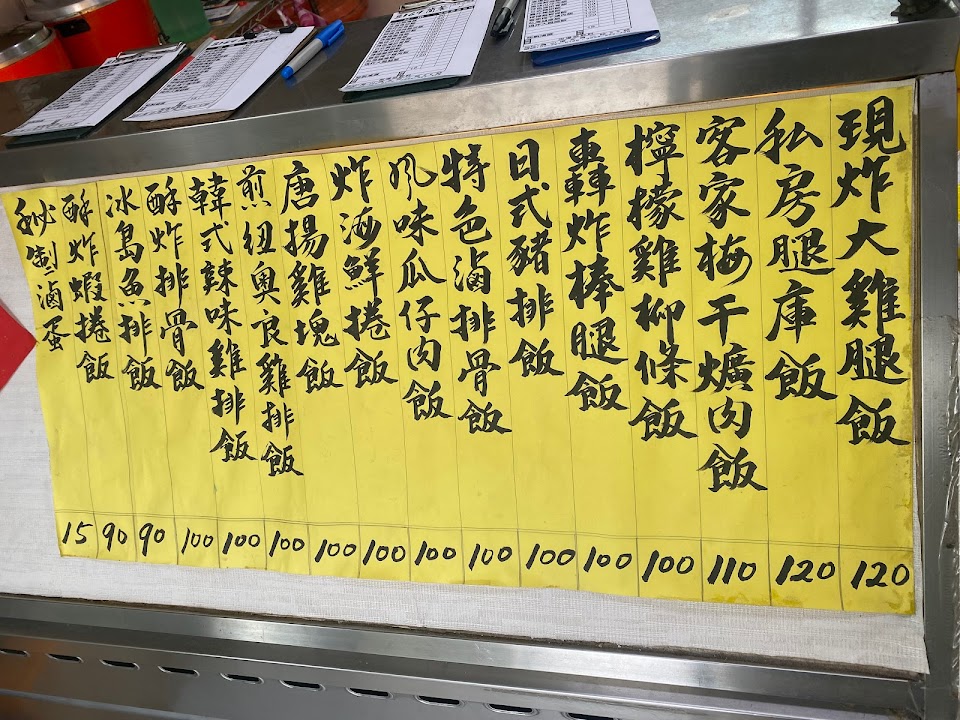 現炸大雞腿飯 120
私房腿庫飯 120
客家梅干爌肉飯 110
檸檬雞柳條飯 100
轟炸棒腿飯 100
日式豬排飯 100
特色滷排骨飯 100
風味瓜仔肉飯 100
炸海鮮捲飯 100
唐揚雞塊飯 100
煎紐奧良雞排飯 100
韓式辣味雞排飯 100
酥炸排骨飯 100
冰島魚排飯 90
酥炸蝦捲飯 90
秘制滷蛋 15